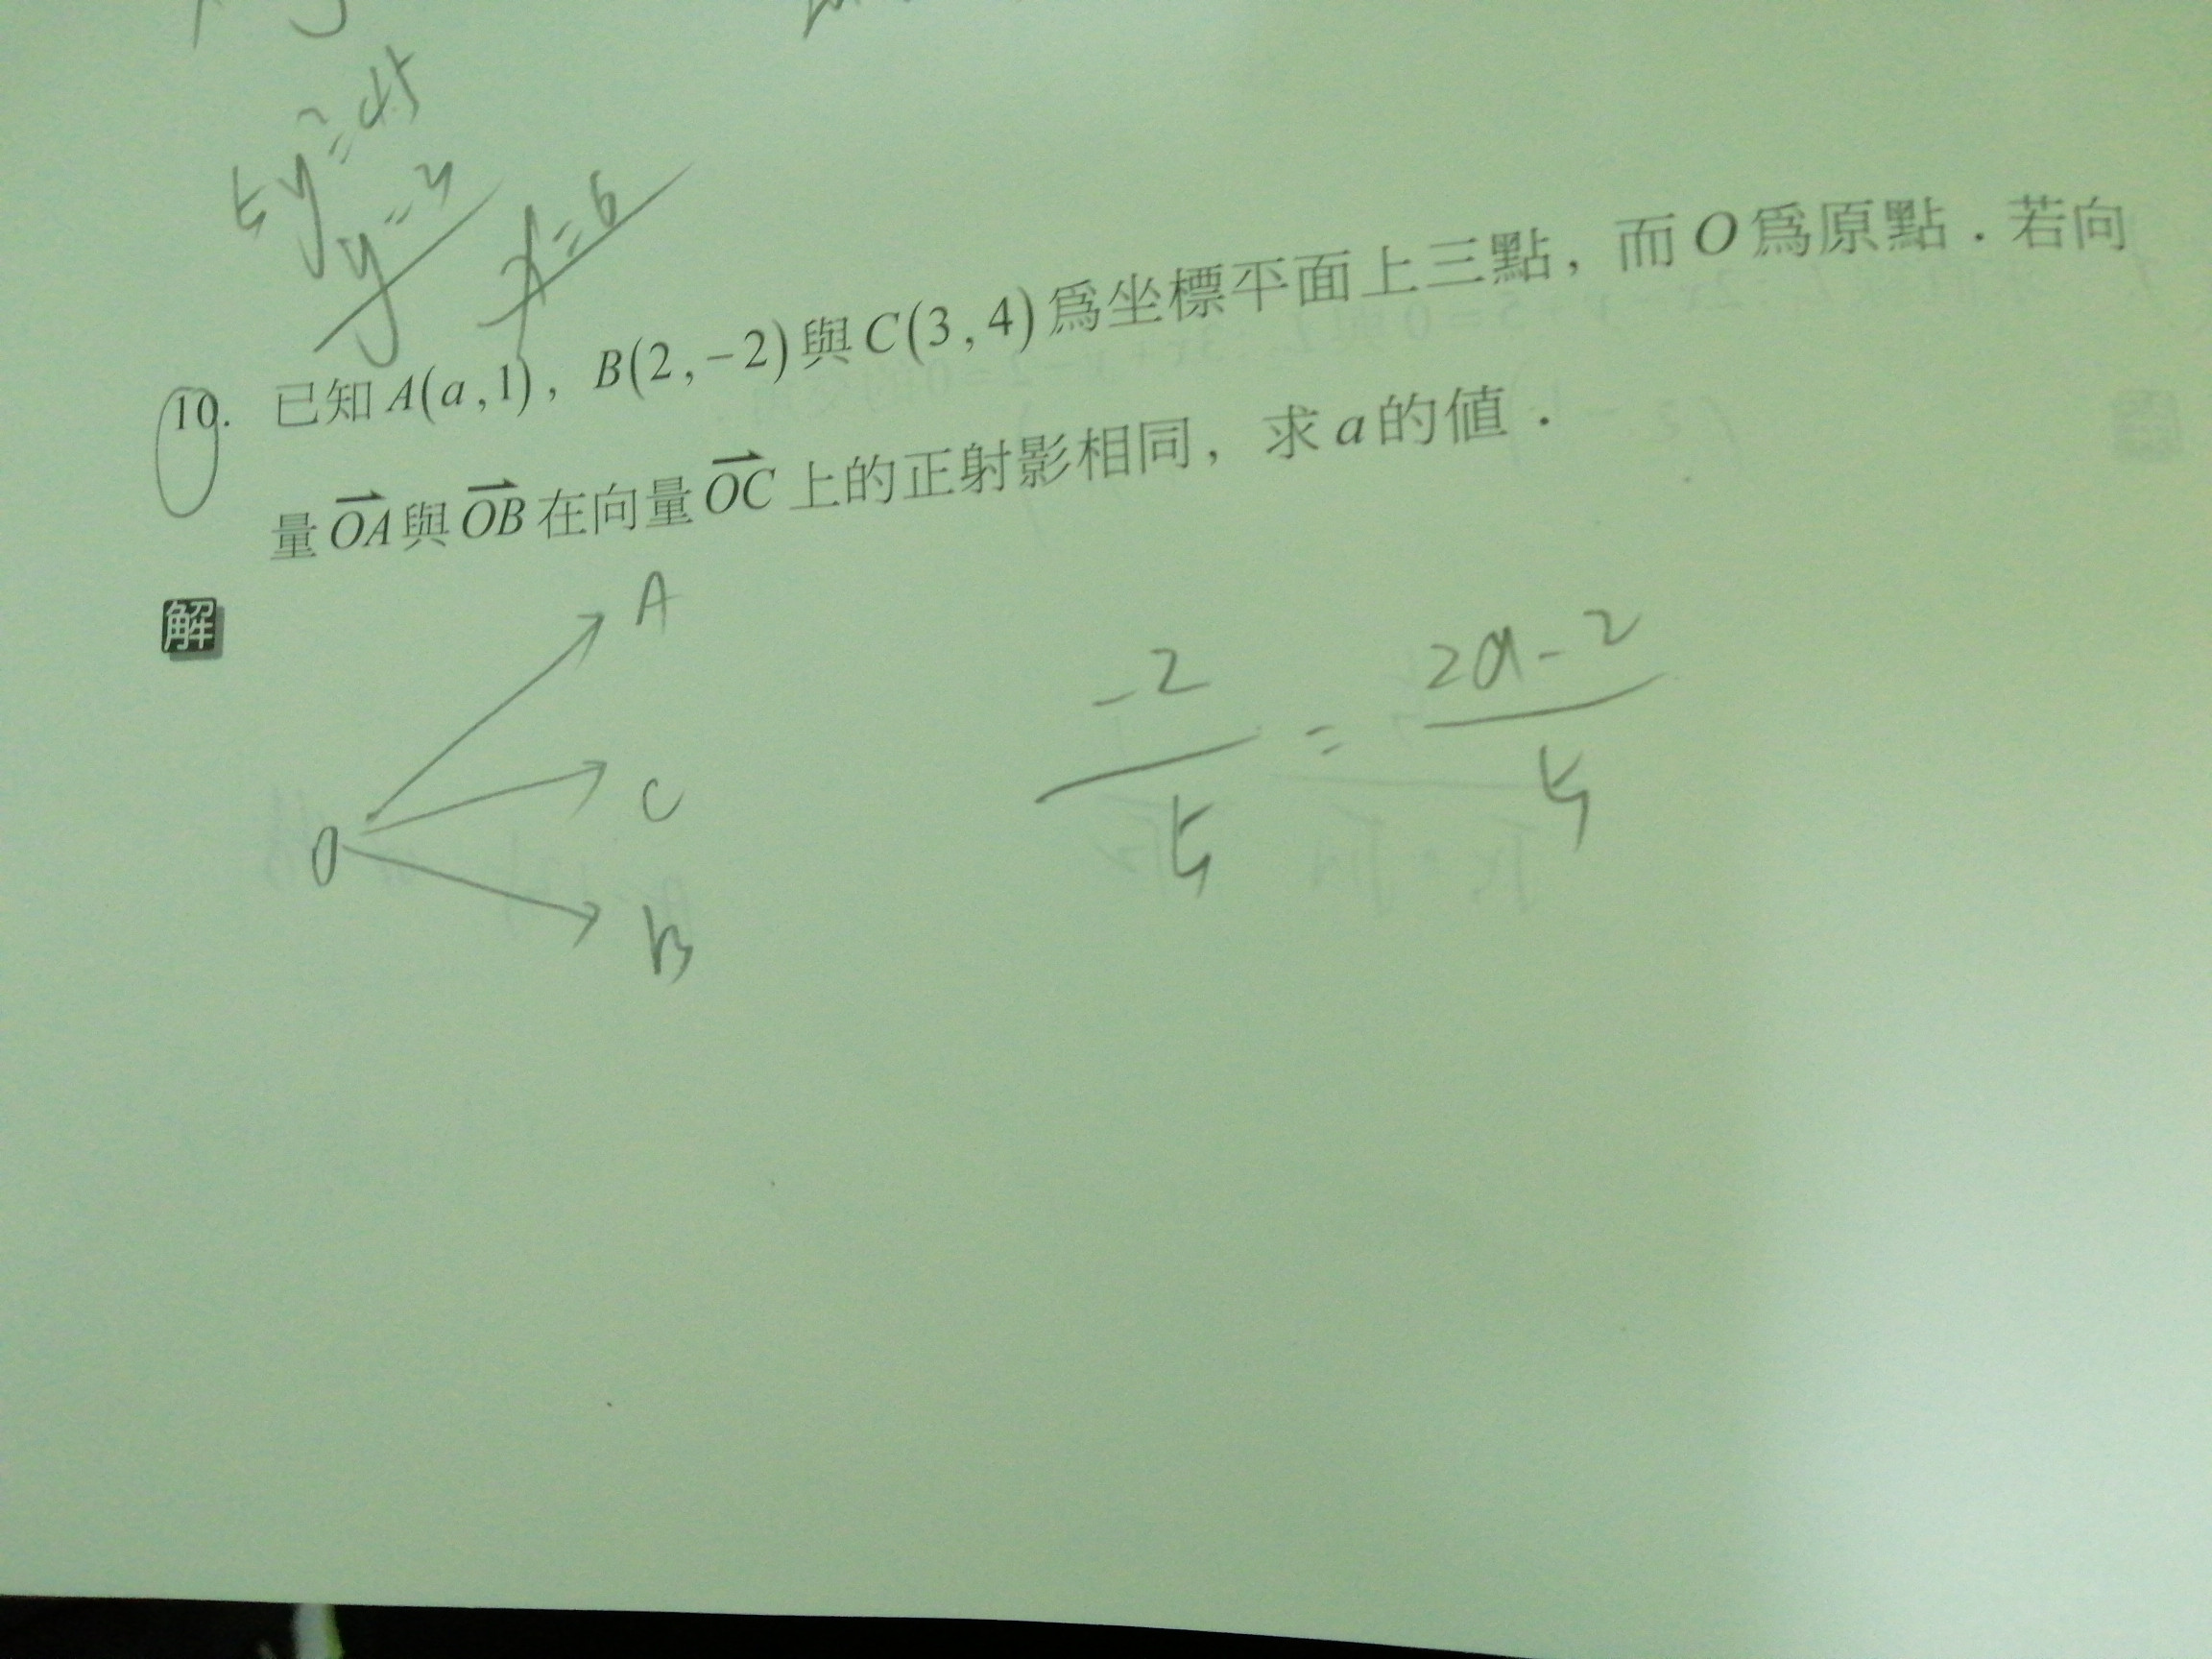 5y²=45
y=3
x=6
10. 已知A(a,1)，B(2,-2)與C(3,4)爲坐標平面上三點，而O爲原點．若向
量OA與OB在向量OC上的正射影相同，求a的値．
解
A
C
O
B
-2/5 = 2a-2/5